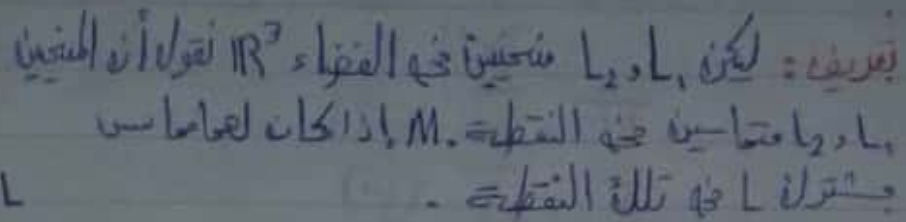 تعريف: ليكن L₁ و L₂ منحنيين في الفضاء ℝ³ نقول أن المنحنيين
L₁ و L₂ متماسين في النقطة M₀ إذا كان لهما مماس
مشترك L في تلك النقطة .
L